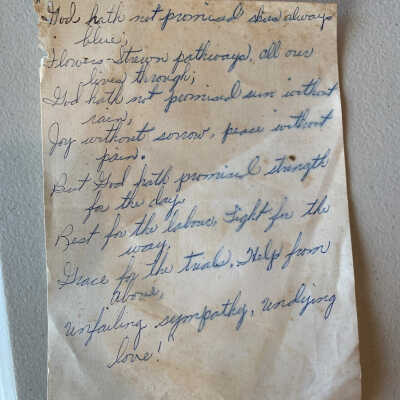 God hath not promised skies always
blue,
Flowers-strewn pathways, all our
lives through;
God hath not promised sun without
rain,
Joy without sorrow, peace without
pain.
But God hath promised strength
for the day,
Rest for the labour, Light for the
way,
Grace for the trials, Help from
above,
Unfailing sympathy, undying
love!